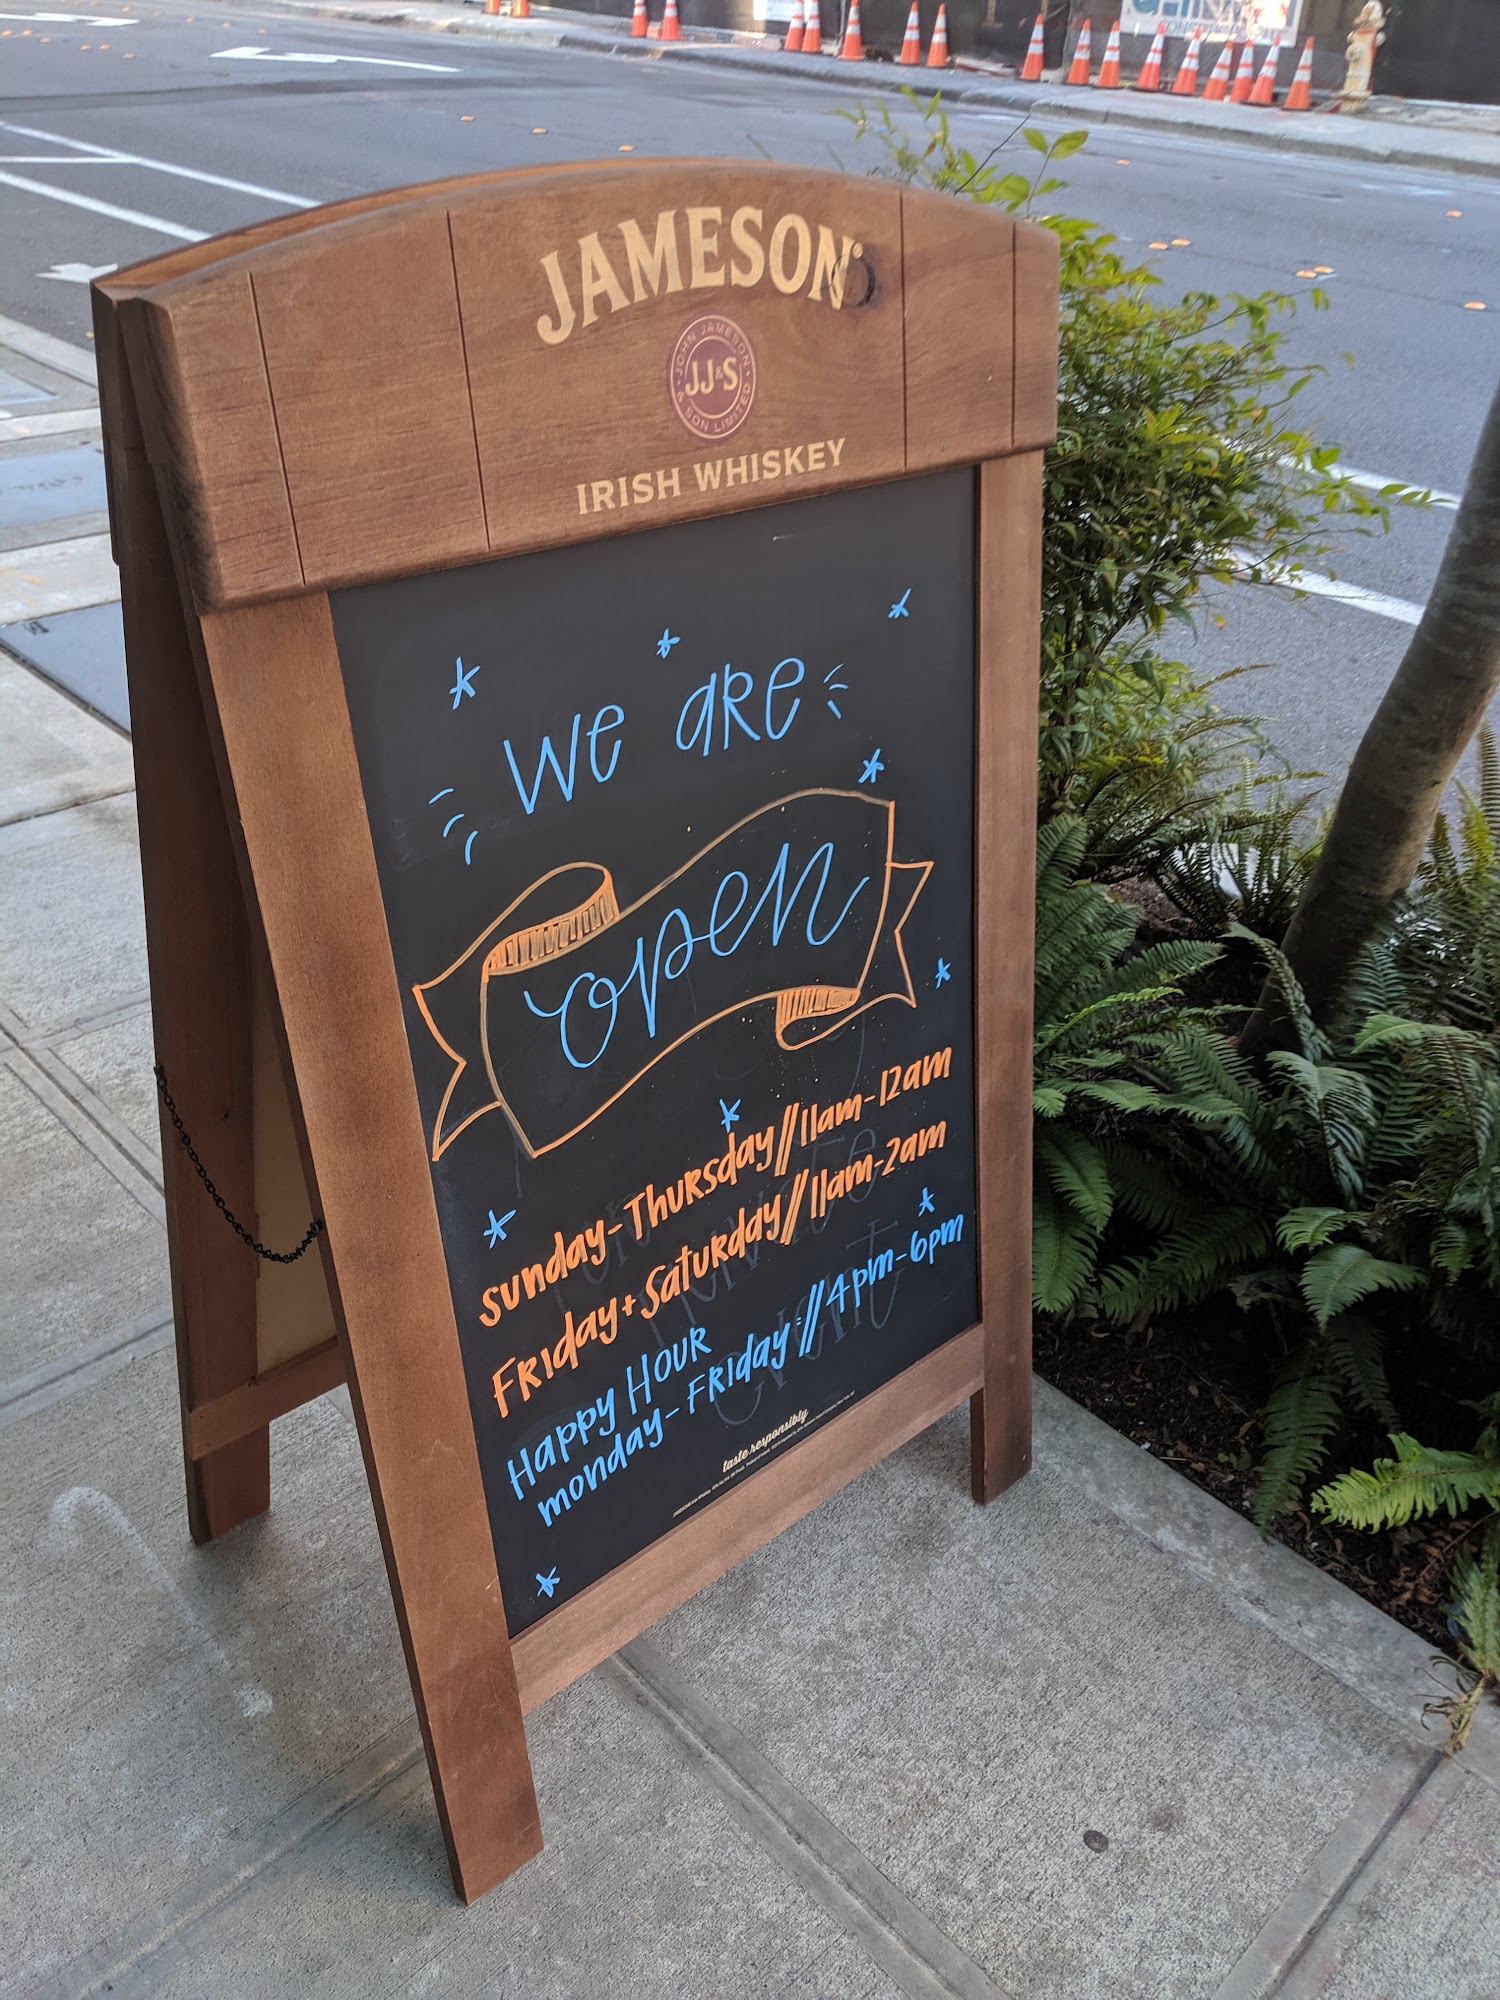 JAMESON®
JOHN JAMESON & SON LIMITED
JJ&S
IRISH WHISKEY
we are
open
sunday-Thursday//11am-12am
Friday+Saturday//11am-2am
Happy Hour
monday-Friday://4pm-6pm
taste responsibly